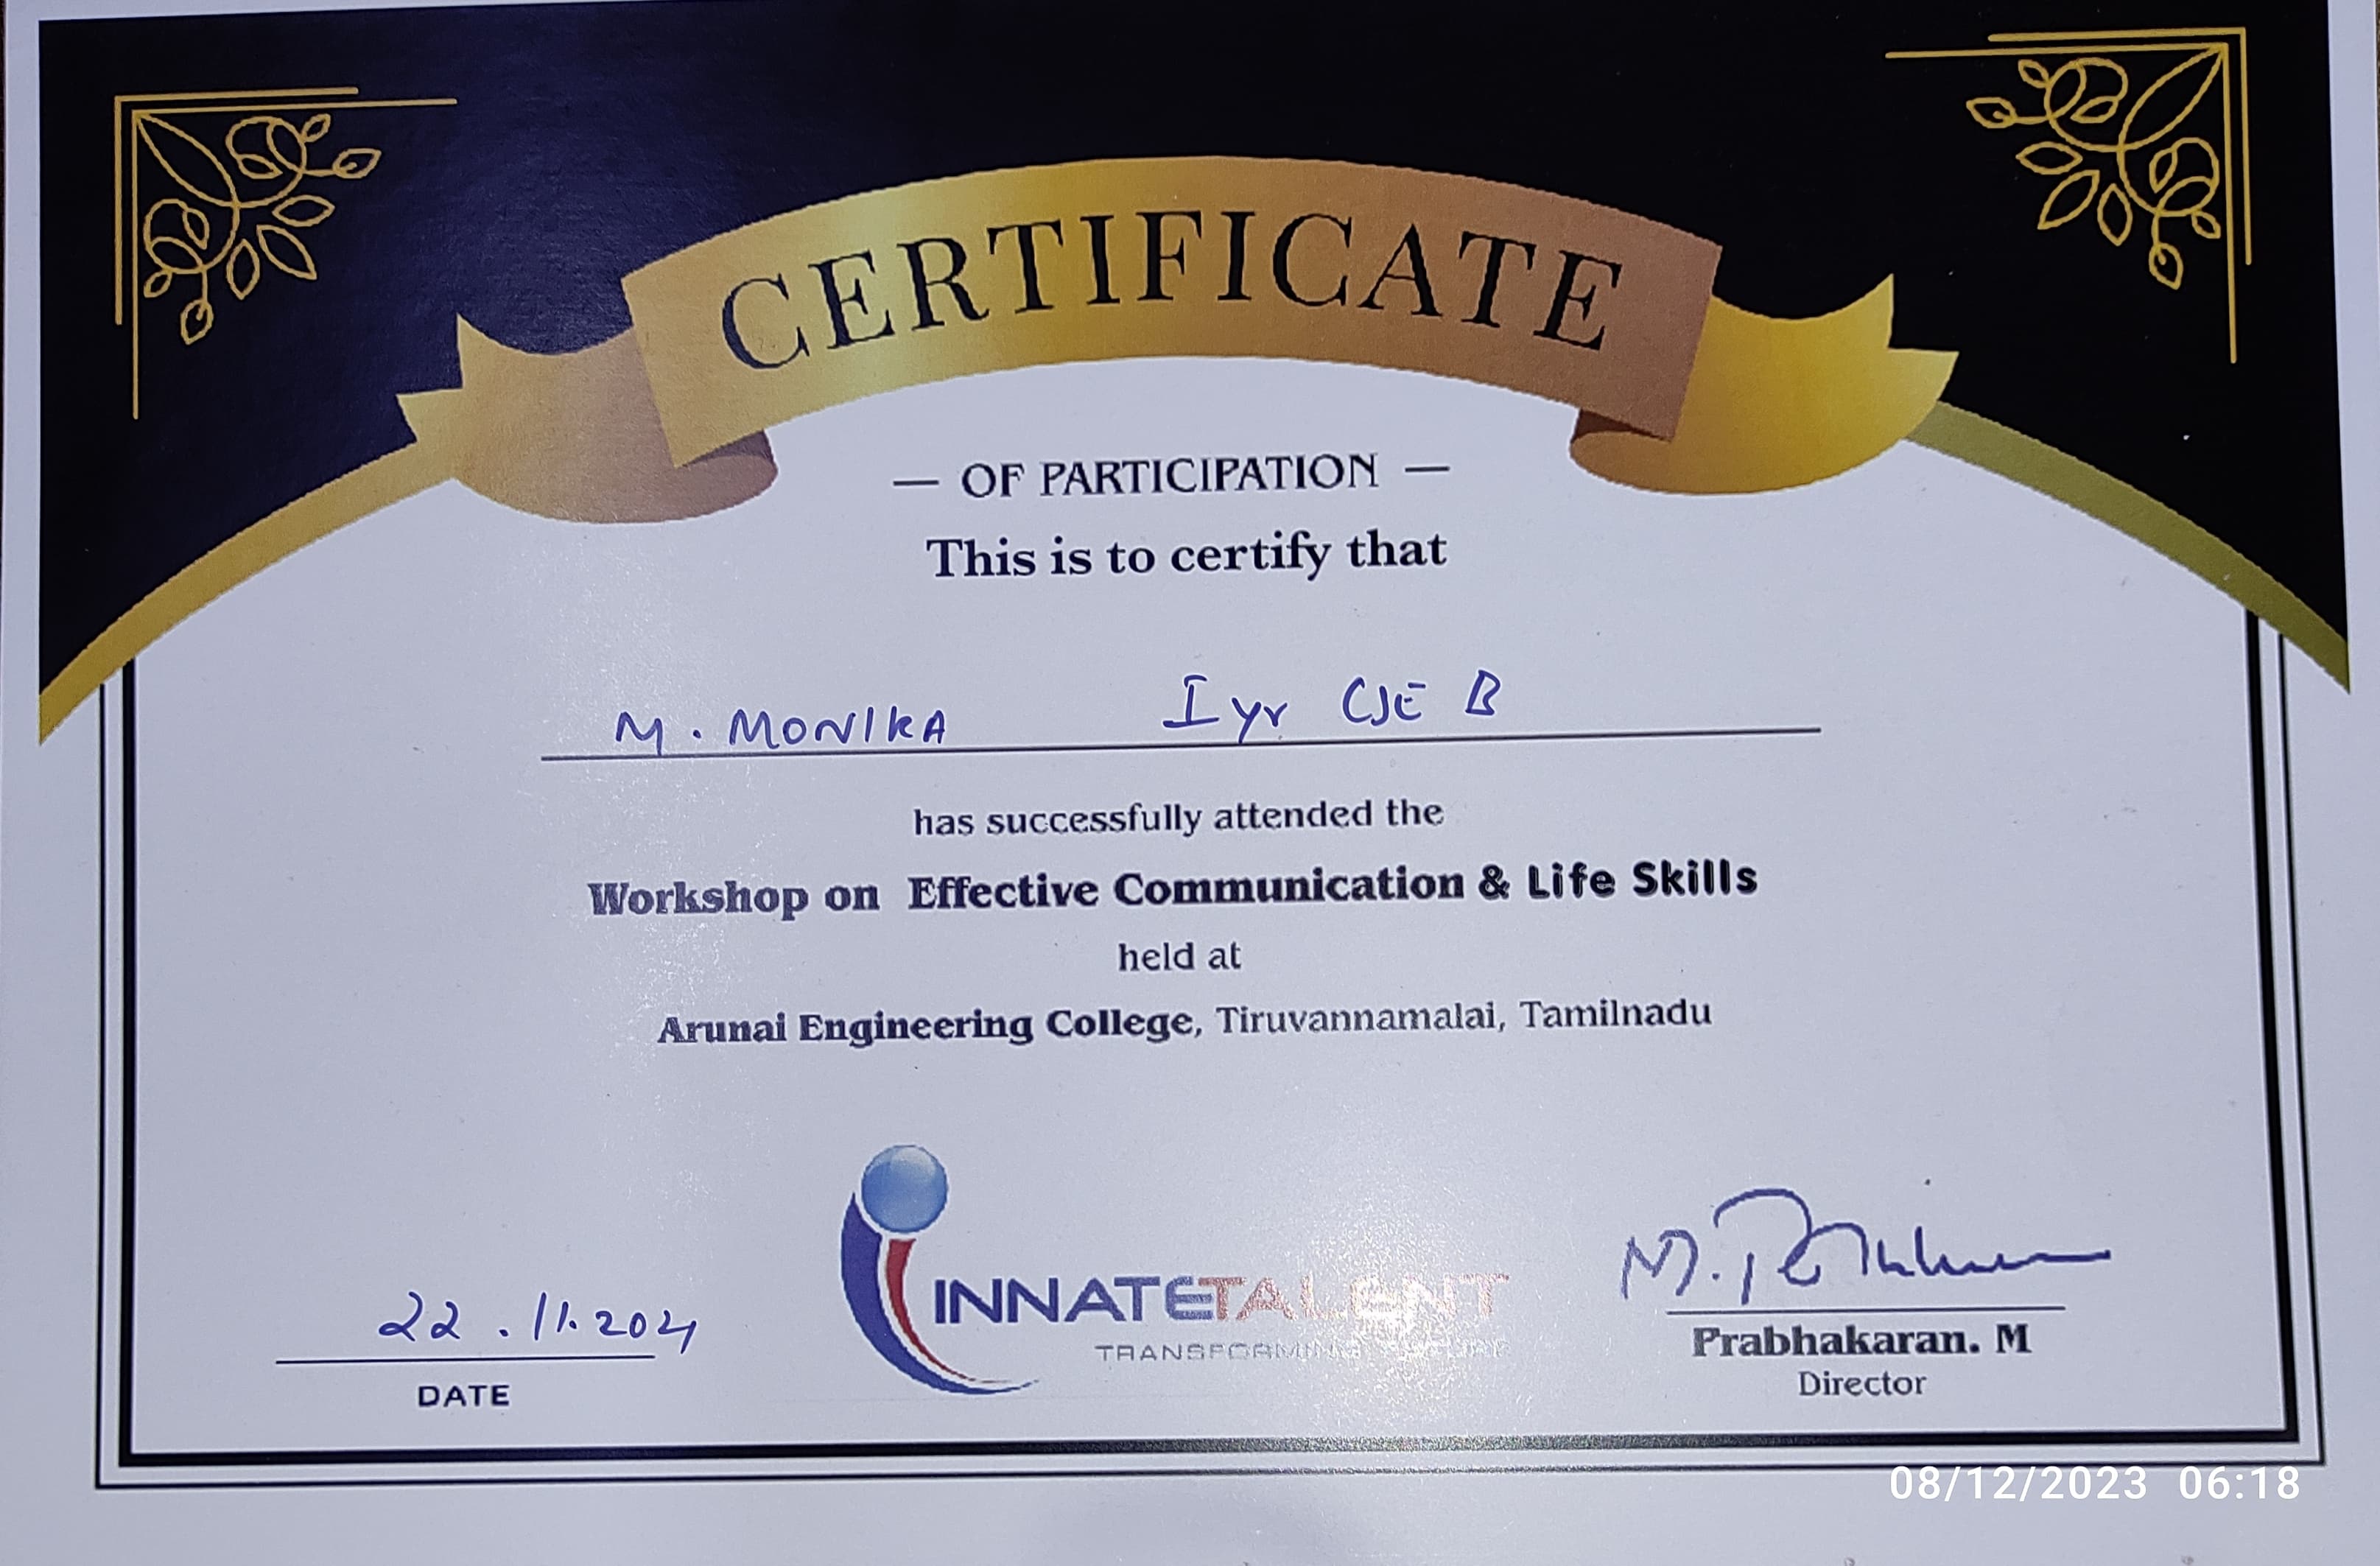 CERTIFICATE
— OF PARTICIPATION —
This is to certify that
M. MONIKA I yr CSE B
has successfully attended the
Workshop on Effective Communication & Life Skills
held at
Arunai Engineering College, Tiruvannamalai, Tamilnadu
22.11.2021
DATE
INNATETALENT
TRANSFORMING
Prabhakaran. M
Director
08/12/2023 06:18